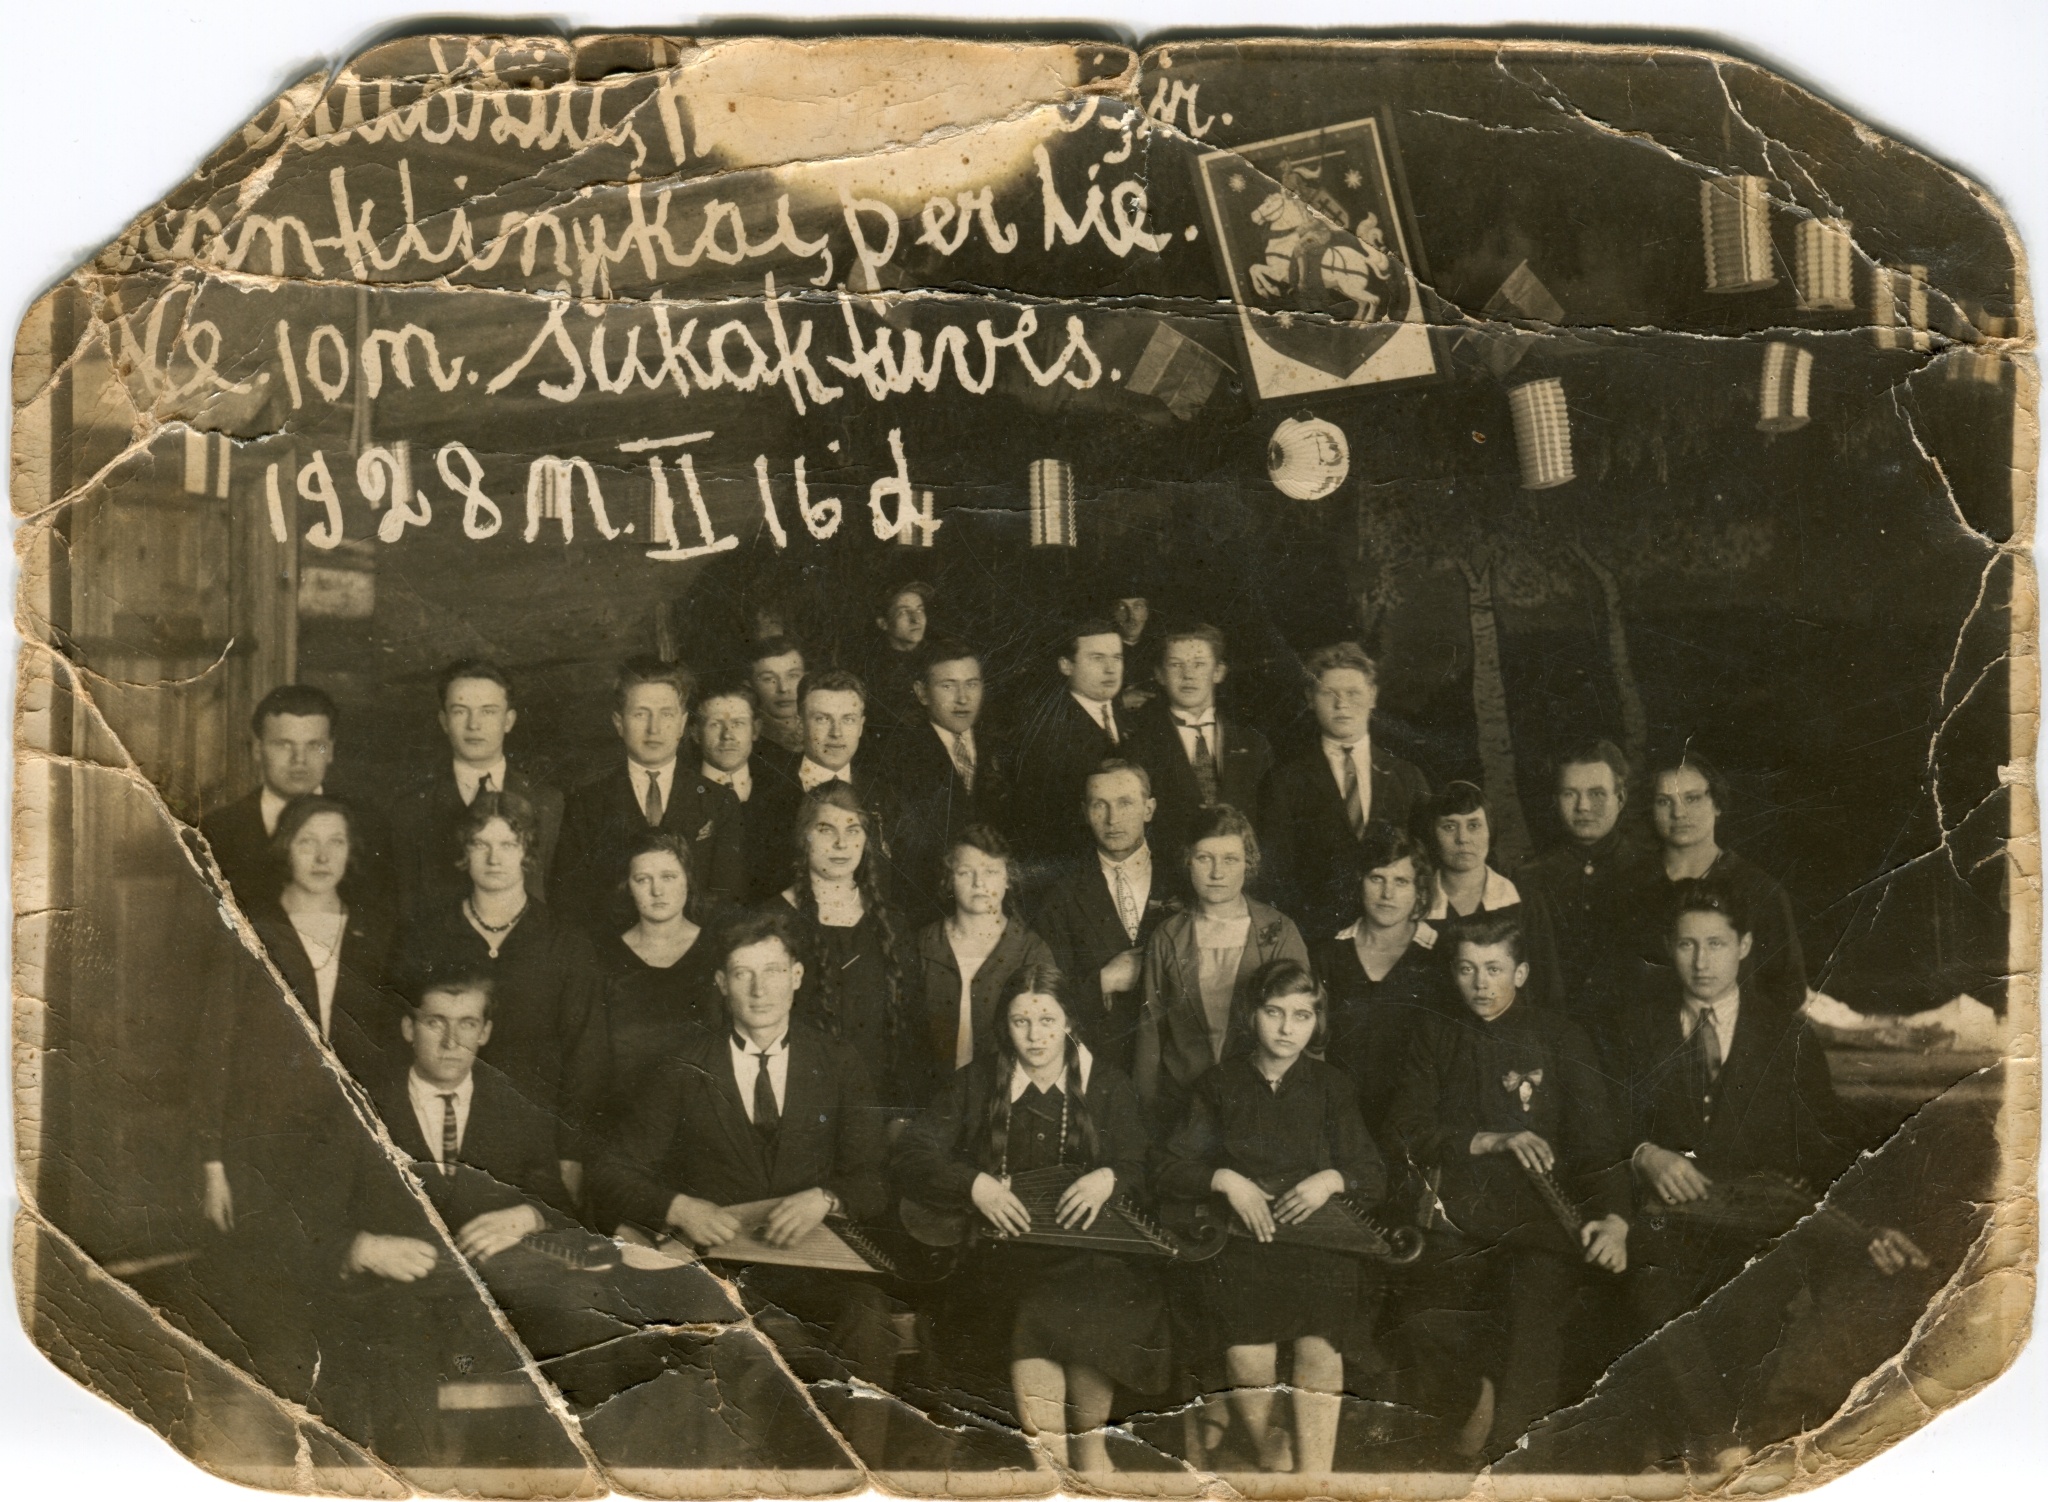 ir.
kanklinykai, per Lie.
Ne. 10m. Sukaktuvės.
1928 M. II 16 d